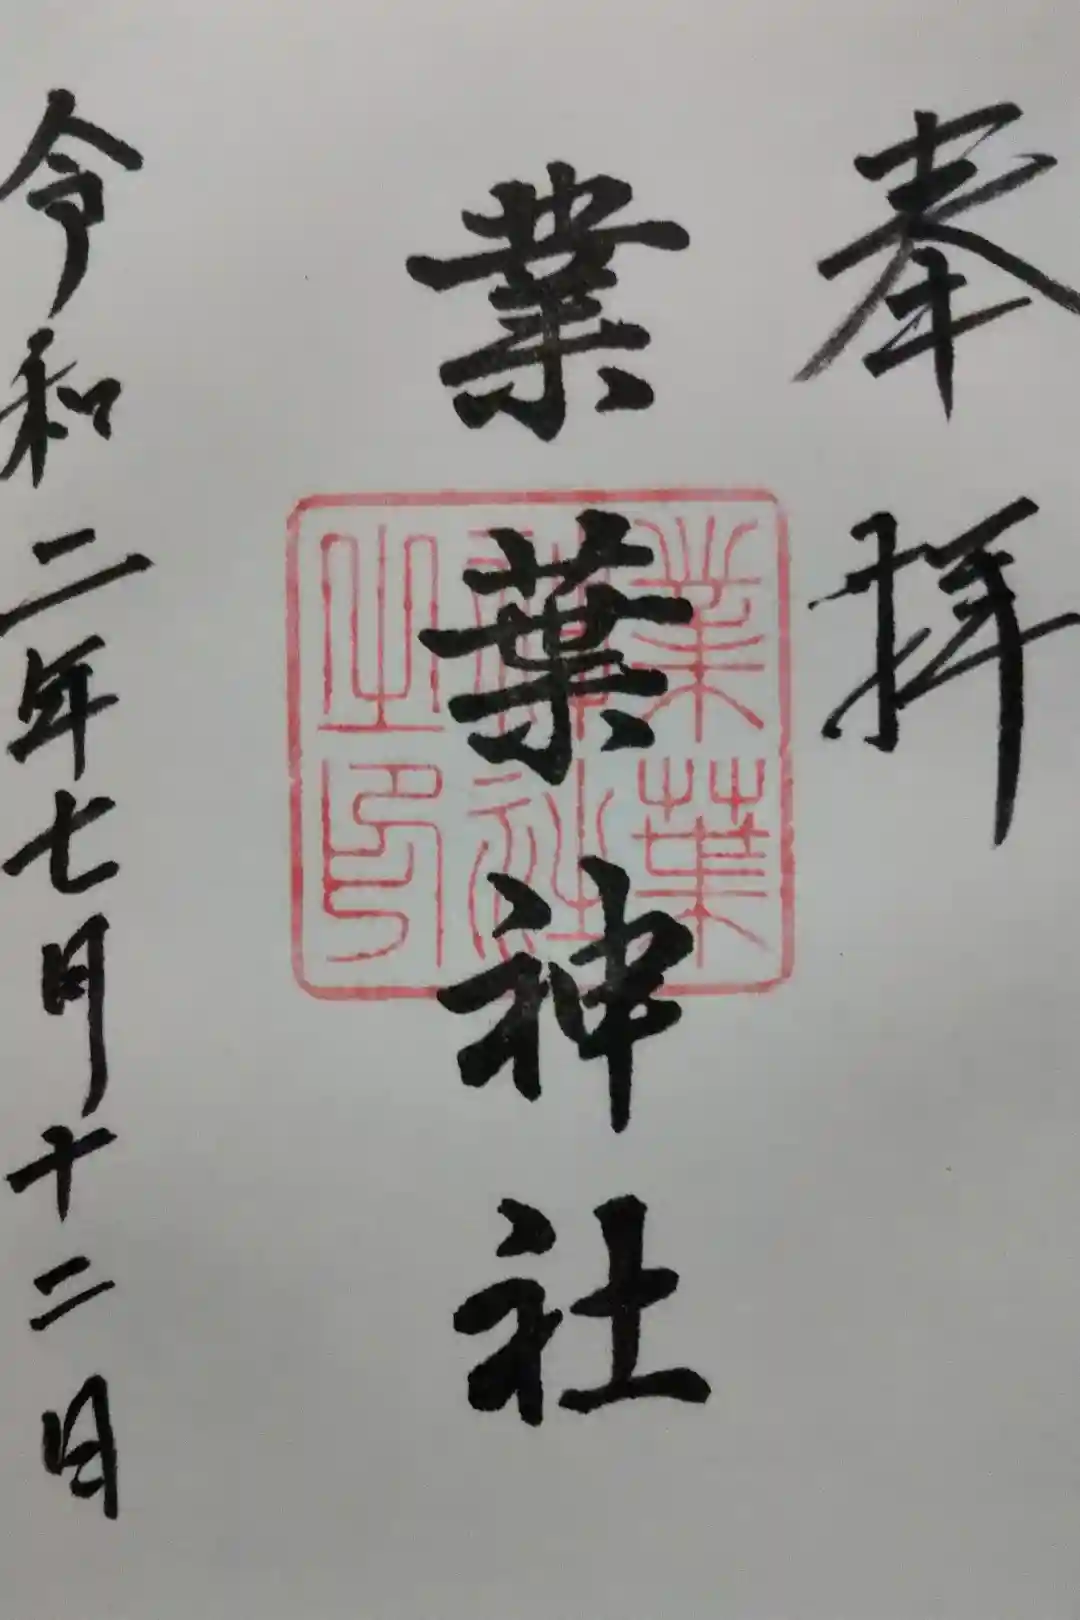 奉拝
業葉神社
業葉
神社
之印
令和二年七月十二日